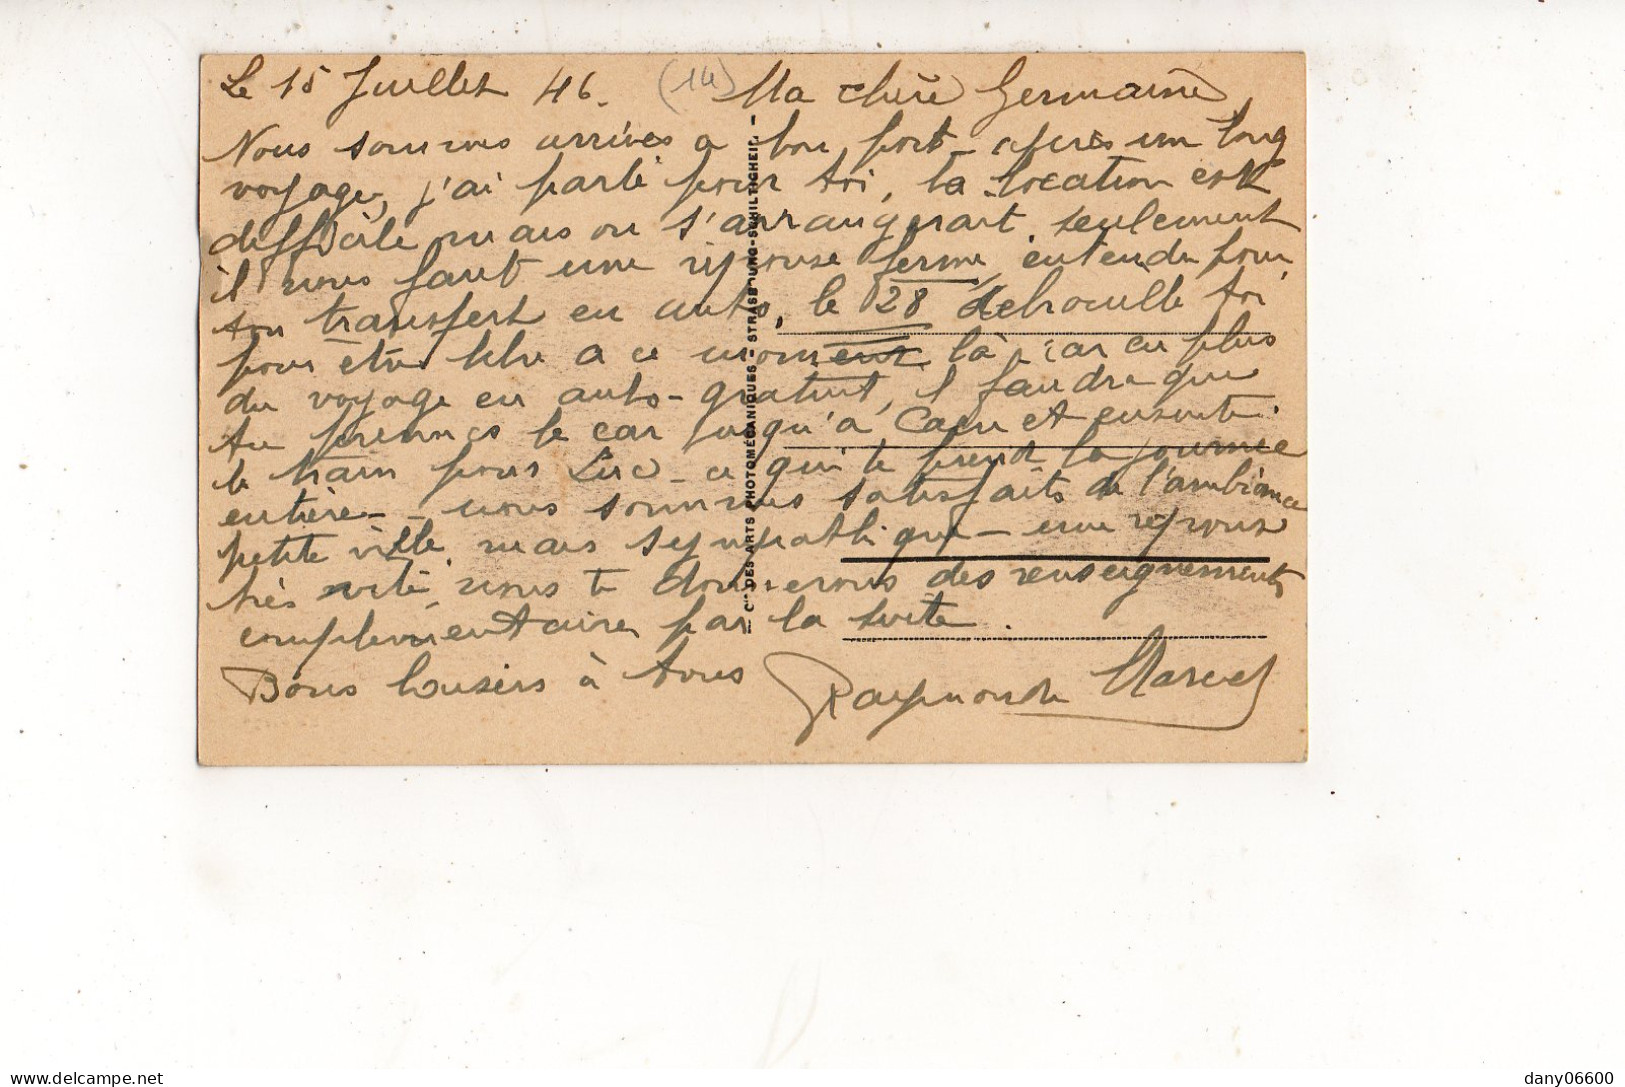 Le 15 Juillet 46. (14) Ma chère Germaine
Nous sommes arrivés a bon port - après un long
voyage, j'ai parlé pour toi, la location est
difficile mais on s'arrangerait, seulement
il nous faut une réponse ferme, entendu pour
ton transfert en auto, le 28 debrouille toi
pour être a ce moment là, car en plus
du voyage en auto - gratuit, il faudra que
tu prennes le car jusqu'à Caen et ensuite
le train pour Luc - ce qui te prend la journée
entière - nous sommes satisfaits de l'ambiance
petite ville, mais sympathique - une réponse
très vite, nous te donnerons des renseignements
complementaires par la suite.
Bons baisers à tous
Raymonde Marcel
Cie DES ARTS PHOTOMÉCANIQUES - STRASBOURG-SCHILTIGHEIM -
delcampe.net
dany06600